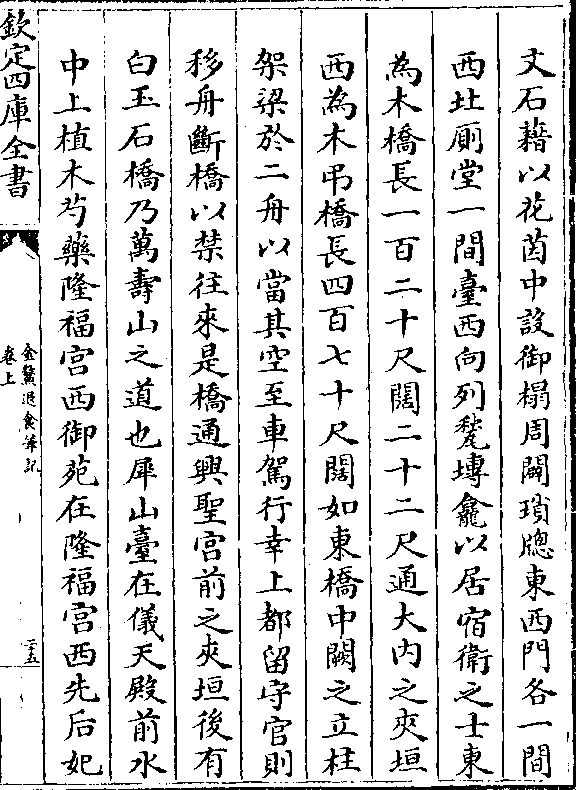 文石藉以花茵中設御榻周闢瑣牕東西門各一間
西北厠堂一間臺西向列甃塼龕以居宿衛之士東
為木橋長一百二十尺闊二十二尺通大内之夾垣
西為木弔橋長四百七十尺闊如東橋中闕之立柱
架梁於二舟以當其空至車駕行幸上都留守官則
移舟斷橋以禁往來是橋通興聖宫前之夾垣後有
白玉石橋乃萬壽山之道也犀山臺在儀天殿前水
中上植木芍藥隆福宫西御苑在隆福宫西先后妃
欽定四庫全書
金鰲退食筆記
卷上
二五